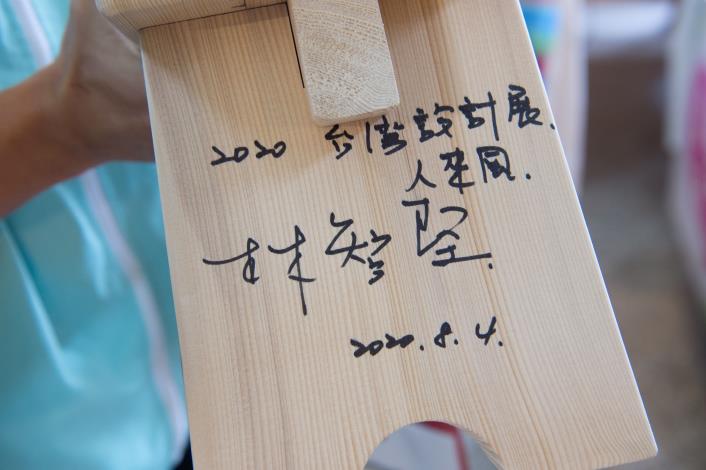 2020 台灣設計展.
人來風.
林智堅.
2020.8.4.